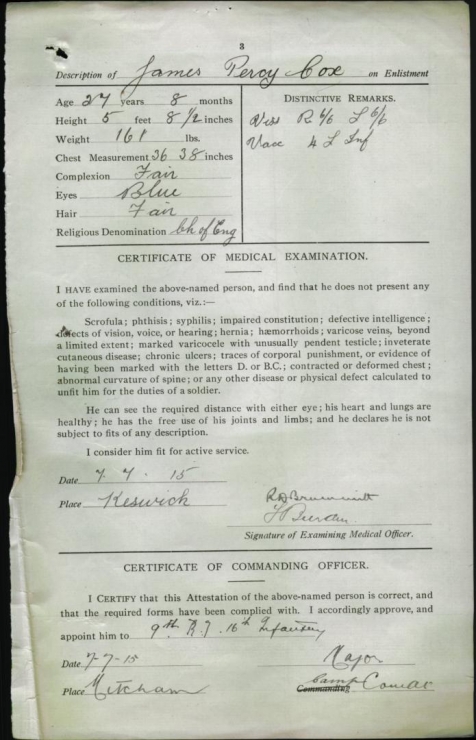 3
Description of James Percy Cox on Enlistment
Age 27 years 8 months
Height 5 feet 8 1/2 inches
Weight 161 lbs.
Chest Measurement 36 38 inches
Complexion Fair
Eyes Blue
Hair Fair
Religious Denomination Ch of Eng
DISTINCTIVE REMARKS.
Viss R 6/6 L 6/6
Vacc 4 L Inf
CERTIFICATE OF MEDICAL EXAMINATION.
I HAVE examined the above-named person, and find that he does not present any
of the following conditions, viz.:—
Scrofula; phthisis; syphilis; impaired constitution; defective intelligence;
defects of vision, voice, or hearing; hernia; hæmorrhoids; varicose veins, beyond
a limited extent; marked varicocele with unusually pendent testicle; inveterate
cutaneous disease; chronic ulcers; traces of corporal punishment, or evidence of
having been marked with the letters D. or B.C.; contracted or deformed chest;
abnormal curvature of spine; or any other disease or physical defect calculated to
unfit him for the duties of a soldier.
He can see the required distance with either eye; his heart and lungs are
healthy; he has the free use of his joints and limbs; and he declares he is not
subject to fits of any description.
I consider him fit for active service.
Date 7 7 . 15
Place Keswick
Signature of Examining Medical Officer.
CERTIFICATE OF COMMANDING OFFICER.
I CERTIFY that this Attestation of the above-named person is correct, and
that the required forms have been complied with. I accordingly approve, and
appoint him to 9th R.f. 16th Infantry
Date 7-7-15
Major
Place Mitcham
Camp
Commanding